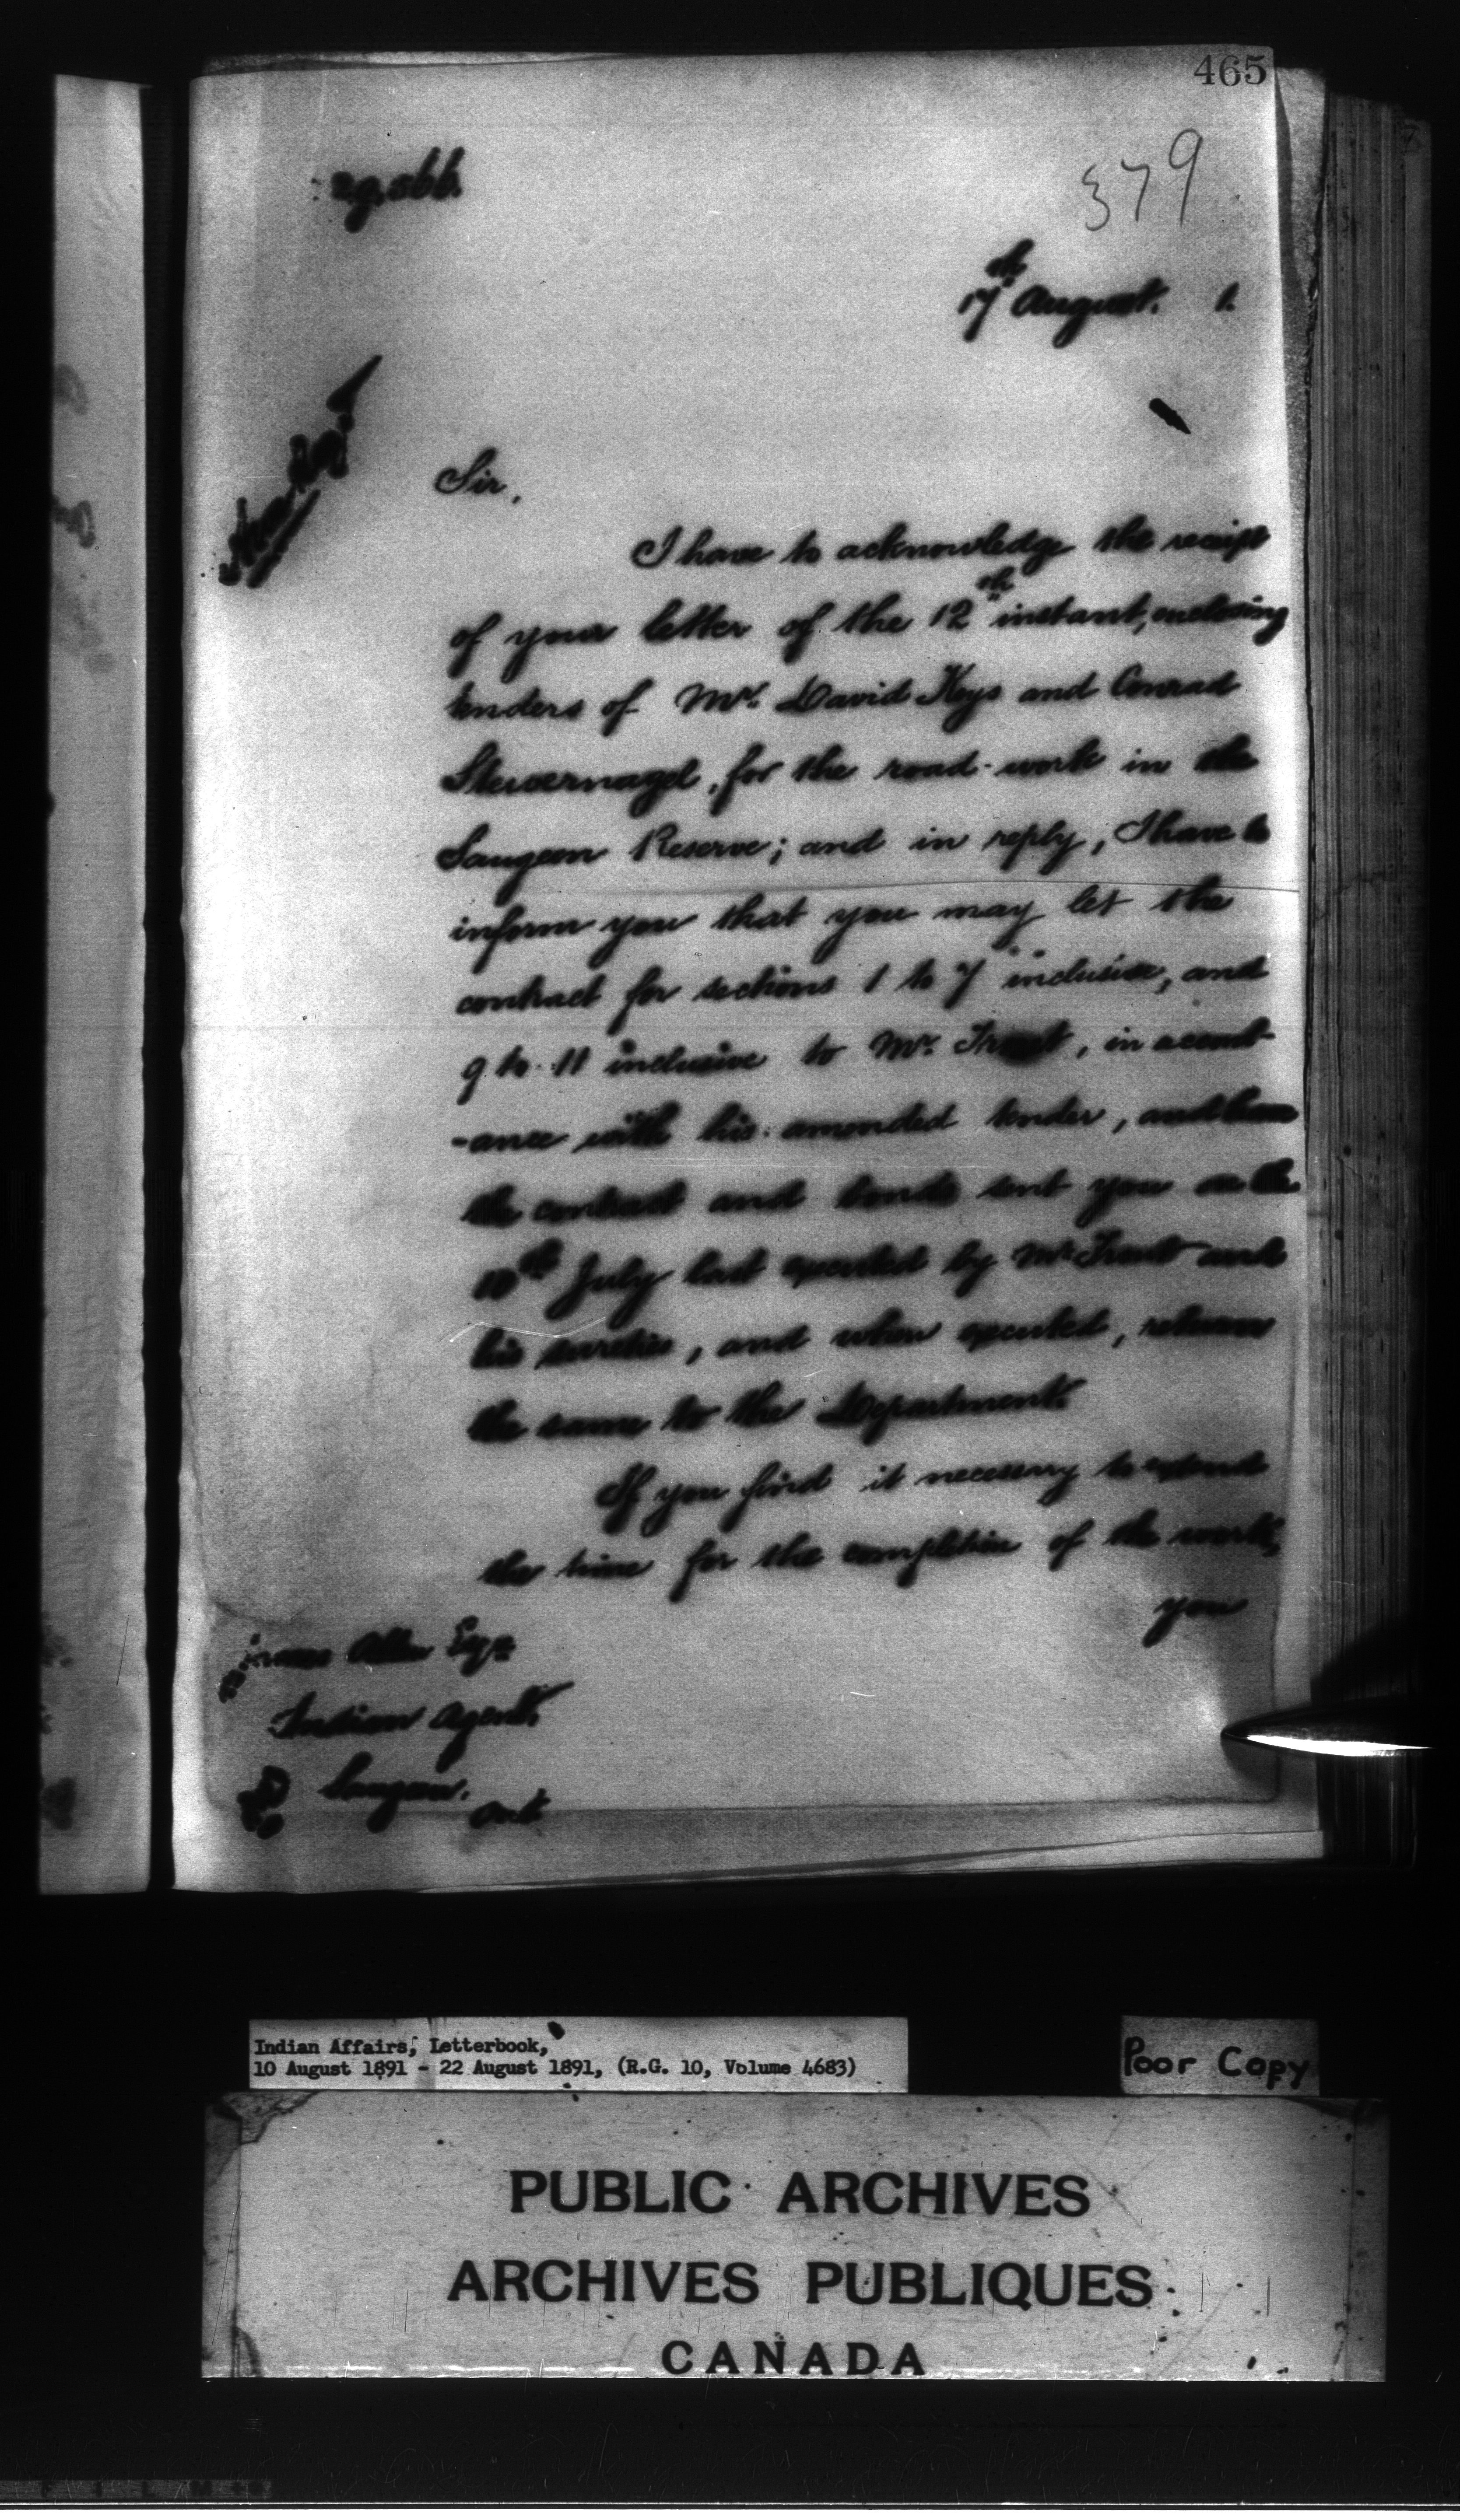 465
379
29,566.
17th August. 1.
Sir,
I have to acknowledge the receipt
of your letter of the 12th instant, enclosing
tenders of Mr. David Keys and Conrad
for the road-work in the
Saugeen Reserve; and in reply, I have to
inform you that you may let the
contract for sections 1 to 7 inclusive, and
9 to 11 inclusive to Mr. , in accord-
-ance with his amended tender, and have
the contract and bonds sent you on the
July last executed by Mr. and
his sureties, and when executed, return
the same to the Department.
If you find it necessary to extend
the time for the completion of the work,
you
Allen Esqre
Indian Agent,
Saugeen.
Ont.
Indian Affairs, Letterbook,
10 August 1891 - 22 August 1891, (R.G. 10, Volume 4683)
Poor Copy
PUBLIC ARCHIVES
ARCHIVES PUBLIQUES
CANADA